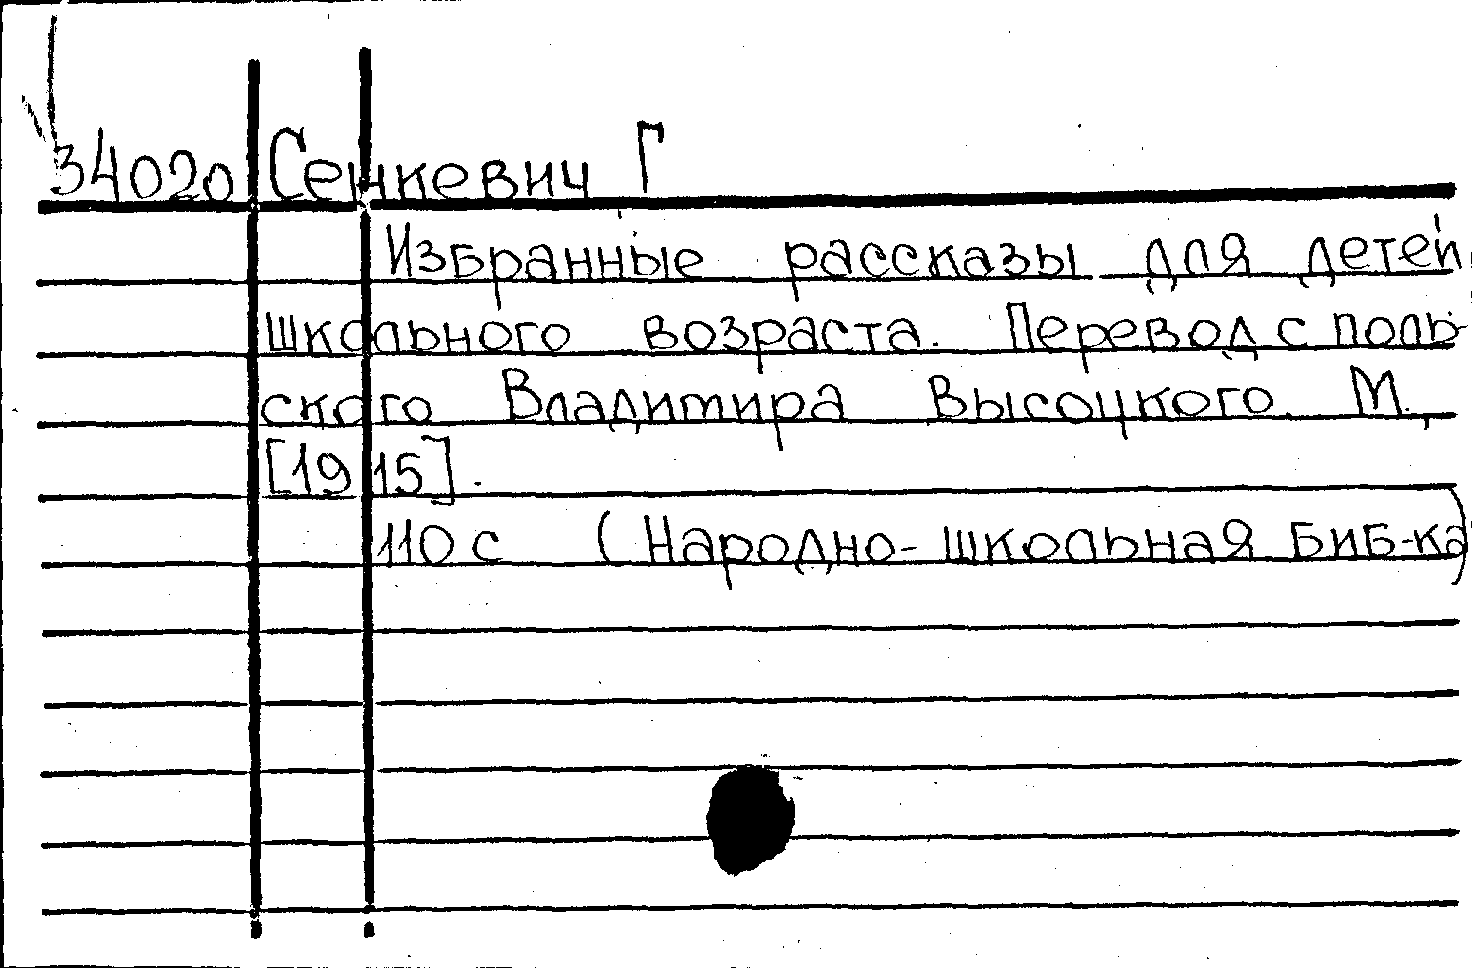 34020 Сенкевич Г
Избранные рассказы для детей
школьного возраста. Перевод с поль-
ского Владимира Высоцкого. М.,
[1915].
110 с (Народно-школьная биб-ка)